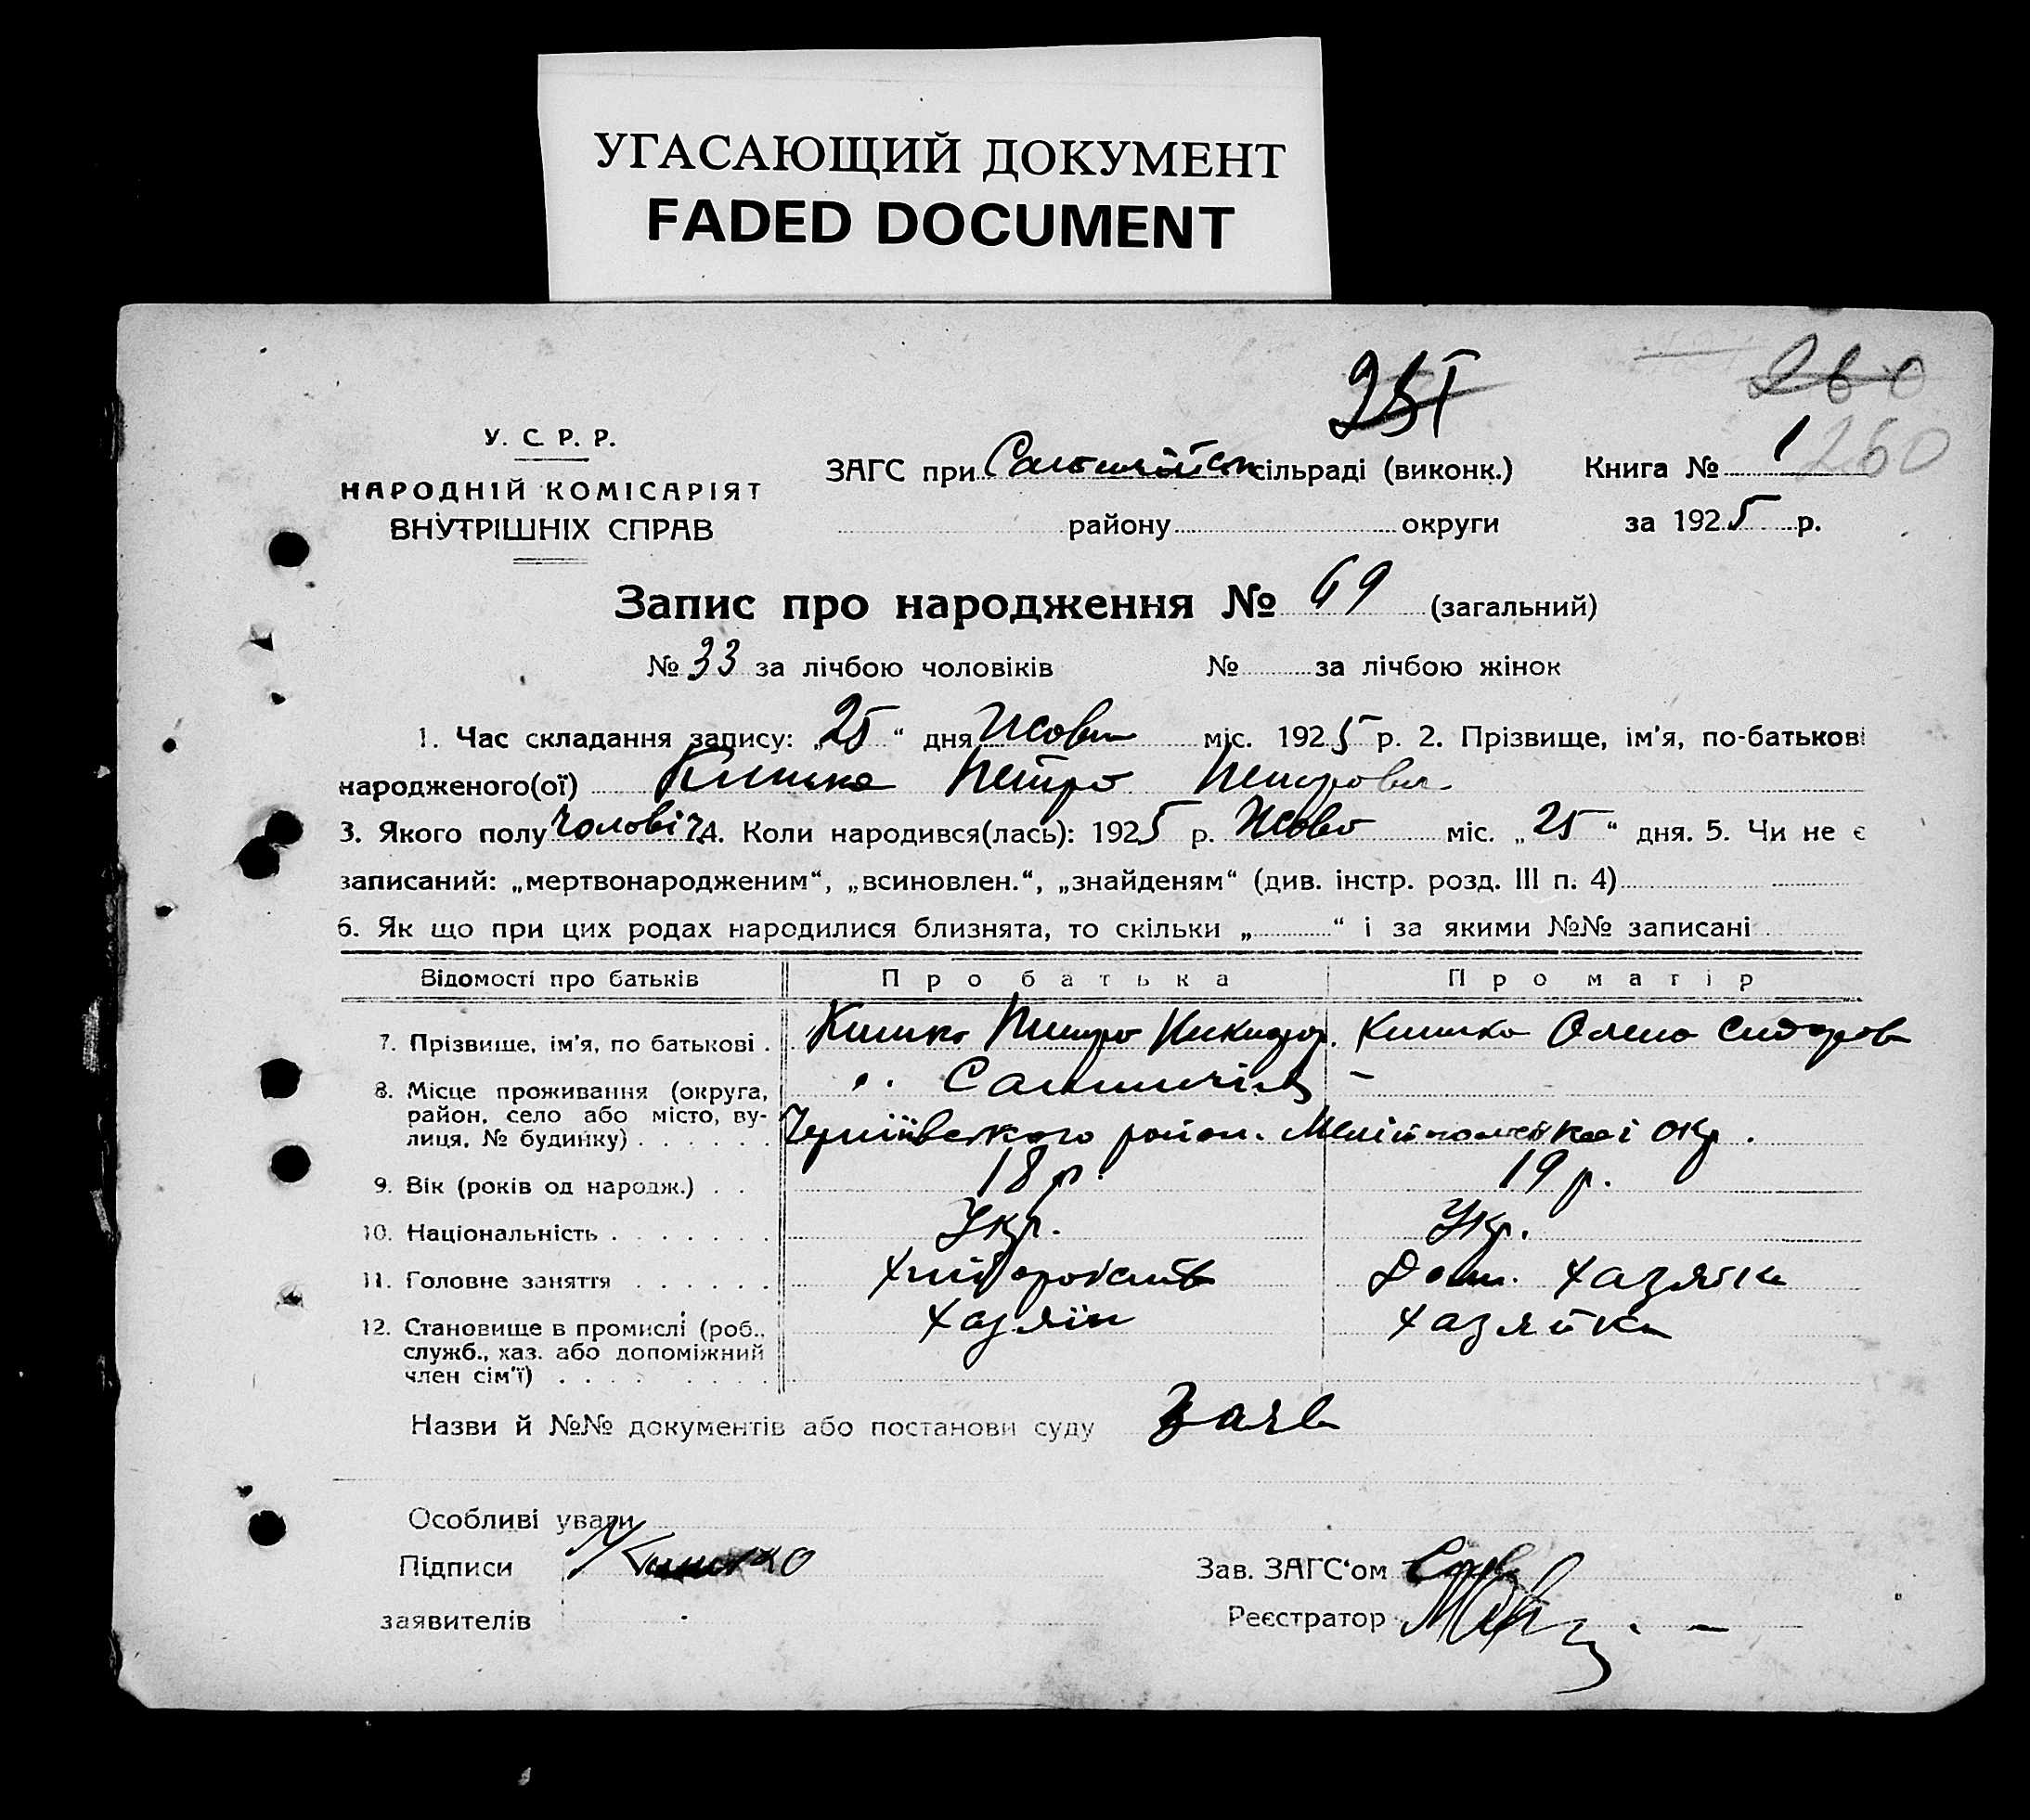 УГАСАЮЩИЙ ДОКУМЕНТ
FADED DOCUMENT
251
260
У. С. Р. Р.
НАРОДНІЙ КОМІСАРІЯТ
ВНУТРІШНІХ СПРАВ
ЗАГС при сільраді (виконк.)
Книга № 1 260
району округи
за 1925 р.
Запис про народження № 69 (загальний)
№ 33 за лічбою чоловіків № за лічбою жінок
1. Час складання запису: „25“ дня Жовтн міс. 1925 р. 2. Прізвище, ім'я, по-батькові
народженого(ої) Кишко Петро Петрович
3. Якого полу Чоловіч 4. Коли народився(лась): 1925 р. Жовт міс. „25“ дня. 5. Чи не є
записаний: „мертвонародженим“, „всиновлен.“, „знайденям“ (див. інстр. розд. III п. 4)
6. Як що при цих родах народилися близнята, то скільки „ “ і за якими №№ записані
Відомості про батьків Про батька Про матір
7. Прізвище, ім'я, по батькові . Кишко Петро Никифор. Кишко Олена Сидоров
8. Місце проживання (округа,
район, село або місто, вулиця, № будинку) Чернігівського район. Мелітопольскоі окр.
9. Вік (років од народж.) . . 18 р. 19 р.
10. Національність Укр. Укр.
11. Головне заняття Хліборобств Дом. Хазяйка
12. Становище в промислі (роб., Хазяїн Хазяйка
служб., хаз. або допоміжний
член сім'ї)
Назви й №№ документів або постанови суду Заяв
Особливі уваги
Підписи Кишко
Зав. ЗАГС'ом
заявителів
Реєстратор